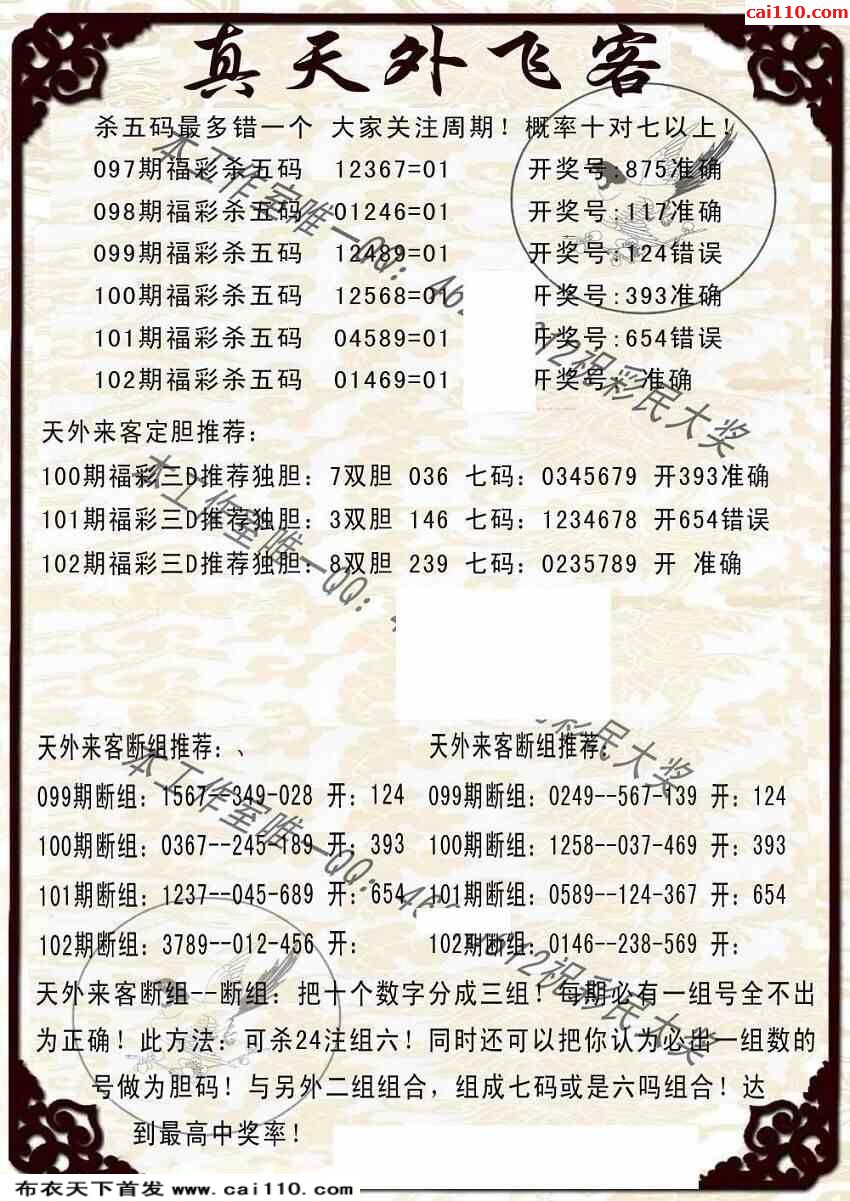 cai110.com
真天外飞客
杀五码最多错一个 大家关注周期！概率十对七以上！
097期福彩杀五码 12367=01 开奖号:875准确
098期福彩杀五码 01246=01 开奖号:117准确
099期福彩杀五码 12489=01 开奖号:124错误
100期福彩杀五码 12568=01 开奖号:393准确
101期福彩杀五码 04589=01 开奖号:654错误
102期福彩杀五码 01469=01 开奖号: 准确
天外来客定胆推荐：
100期福彩三D推荐独胆：7双胆 036 七码：0345679 开393准确
101期福彩三D推荐独胆：3双胆 146 七码：1234678 开654错误
102期福彩三D推荐独胆：8双胆 239 七码：0235789 开 准确
天外来客断组推荐：、
099期断组：1567--349-028 开：124
100期断组：0367--245-189 开：393
101期断组：1237--045-689 开：654
102期断组：3789--012-456 开：
天外来客断组推荐：
099期断组：0249--567-139 开：124
100期断组：1258--037-469 开：393
101期断组：0589--124-367 开：654
102期断组：0146--238-569 开：
天外来客断组--断组：把十个数字分成三组！每期必有一组号全不出
为正确！此方法：可杀24注组六！同时还可以把你认为必出一组数的
号做为胆码！与另外二组组合，组成七码或是六吗组合！达
到最高中奖率！
本工作室唯一QQ：46
12祝彩民大奖
本工作室唯一QQ：
彩民大奖
本工作室唯一QQ：46
12祝彩民大奖
布衣天下首发 www.cai110.com